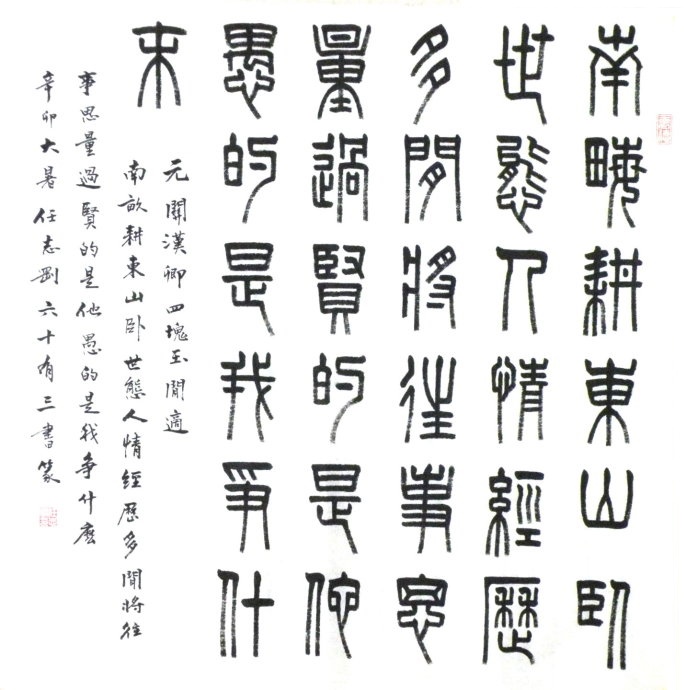 南畮耕東山卧
世態人情經歷
多閒將往事思
量過賢的是他
愚的是我爭什
末
元關漢卿四塊玉閒適
南畝耕東山卧世態人情經歷多閒將往
事思量過賢的是他愚的是我爭什麽
辛卯大暑任志剛六十有三書篆